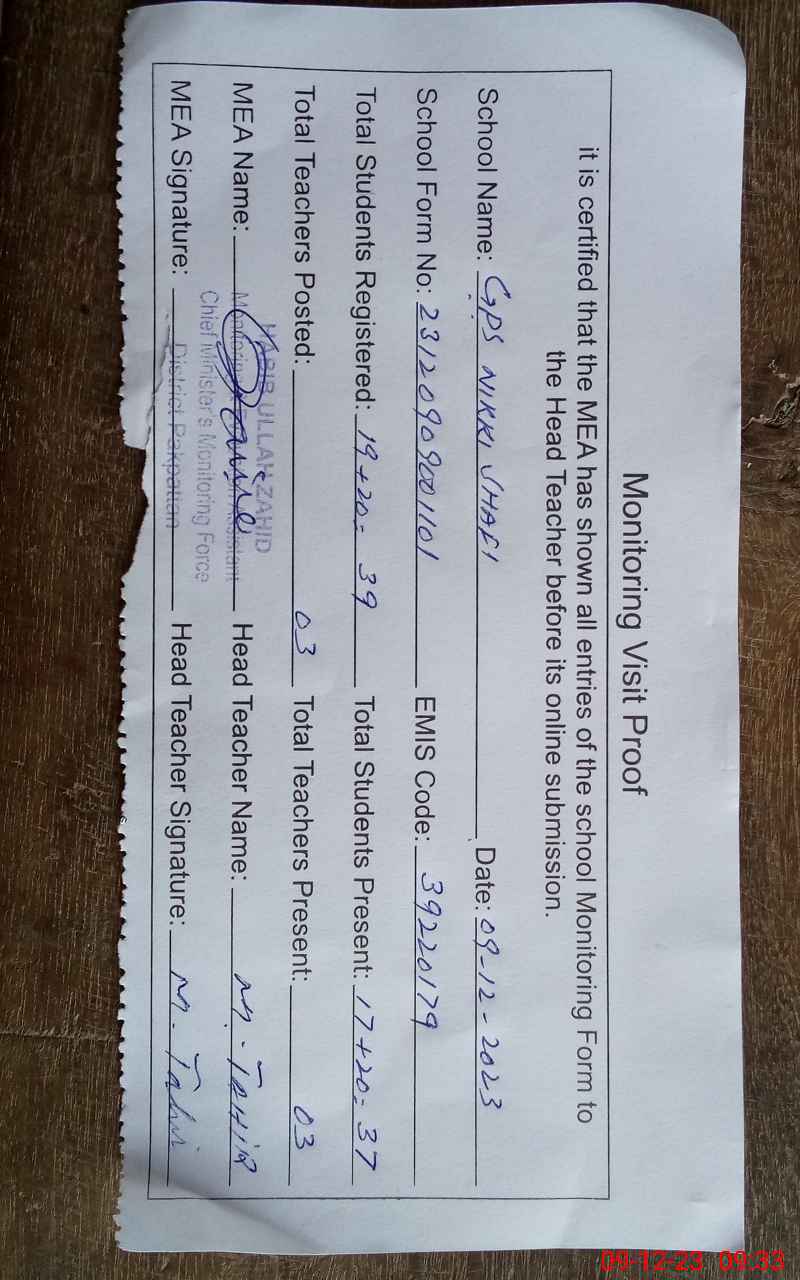 Monitoring Visit Proof
it is certified that the MEA has shown all entries of the school Monitoring Form to
the Head Teacher before its online submission.
School Name: GPS NIKKI SHAFI Date: 09-12-2023
School Form No: 23120909001101 EMIS Code: 39220179
Total Students Registered: 19+20= 39 Total Students Present: 17+20= 37
Total Teachers Posted: 03 Total Teachers Present: 03
HABIB ULLAH ZAHID
MEA Name: Head Teacher Name: M. TAHIR
Chief Minister's Monitoring Force
MEA Signature: District Pakpattan Head Teacher Signature: M. Tahir
09-12-23 09:33